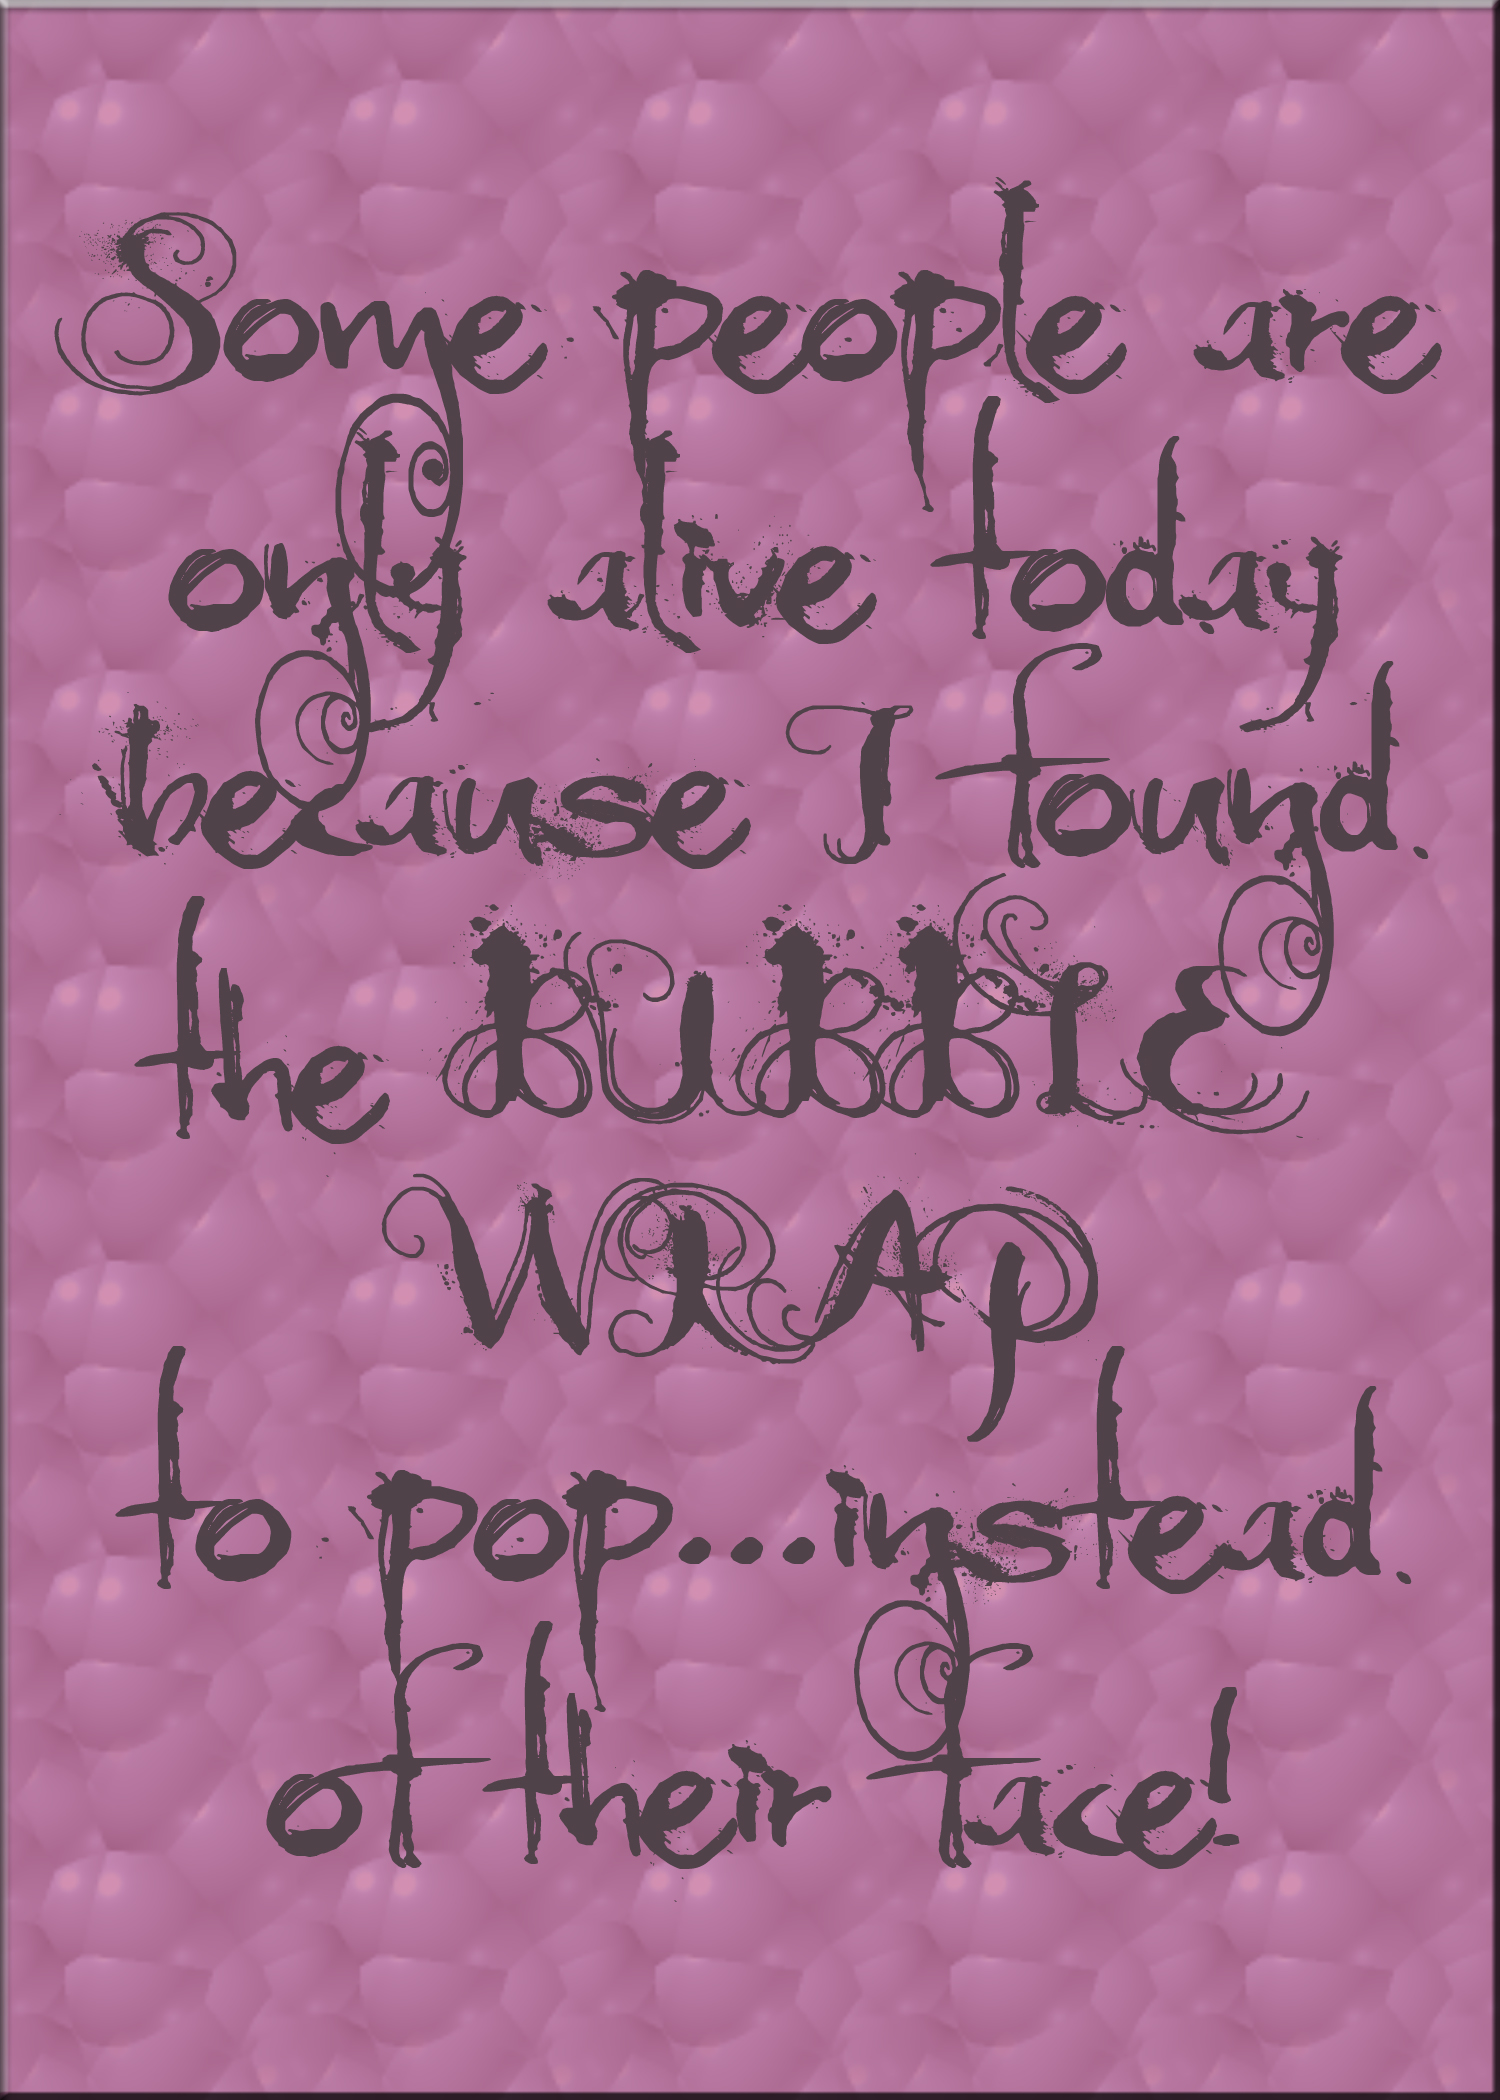 Some people are
only alive today
because I found
the BUBBLE
WRAP
to pop...instead
of their face!